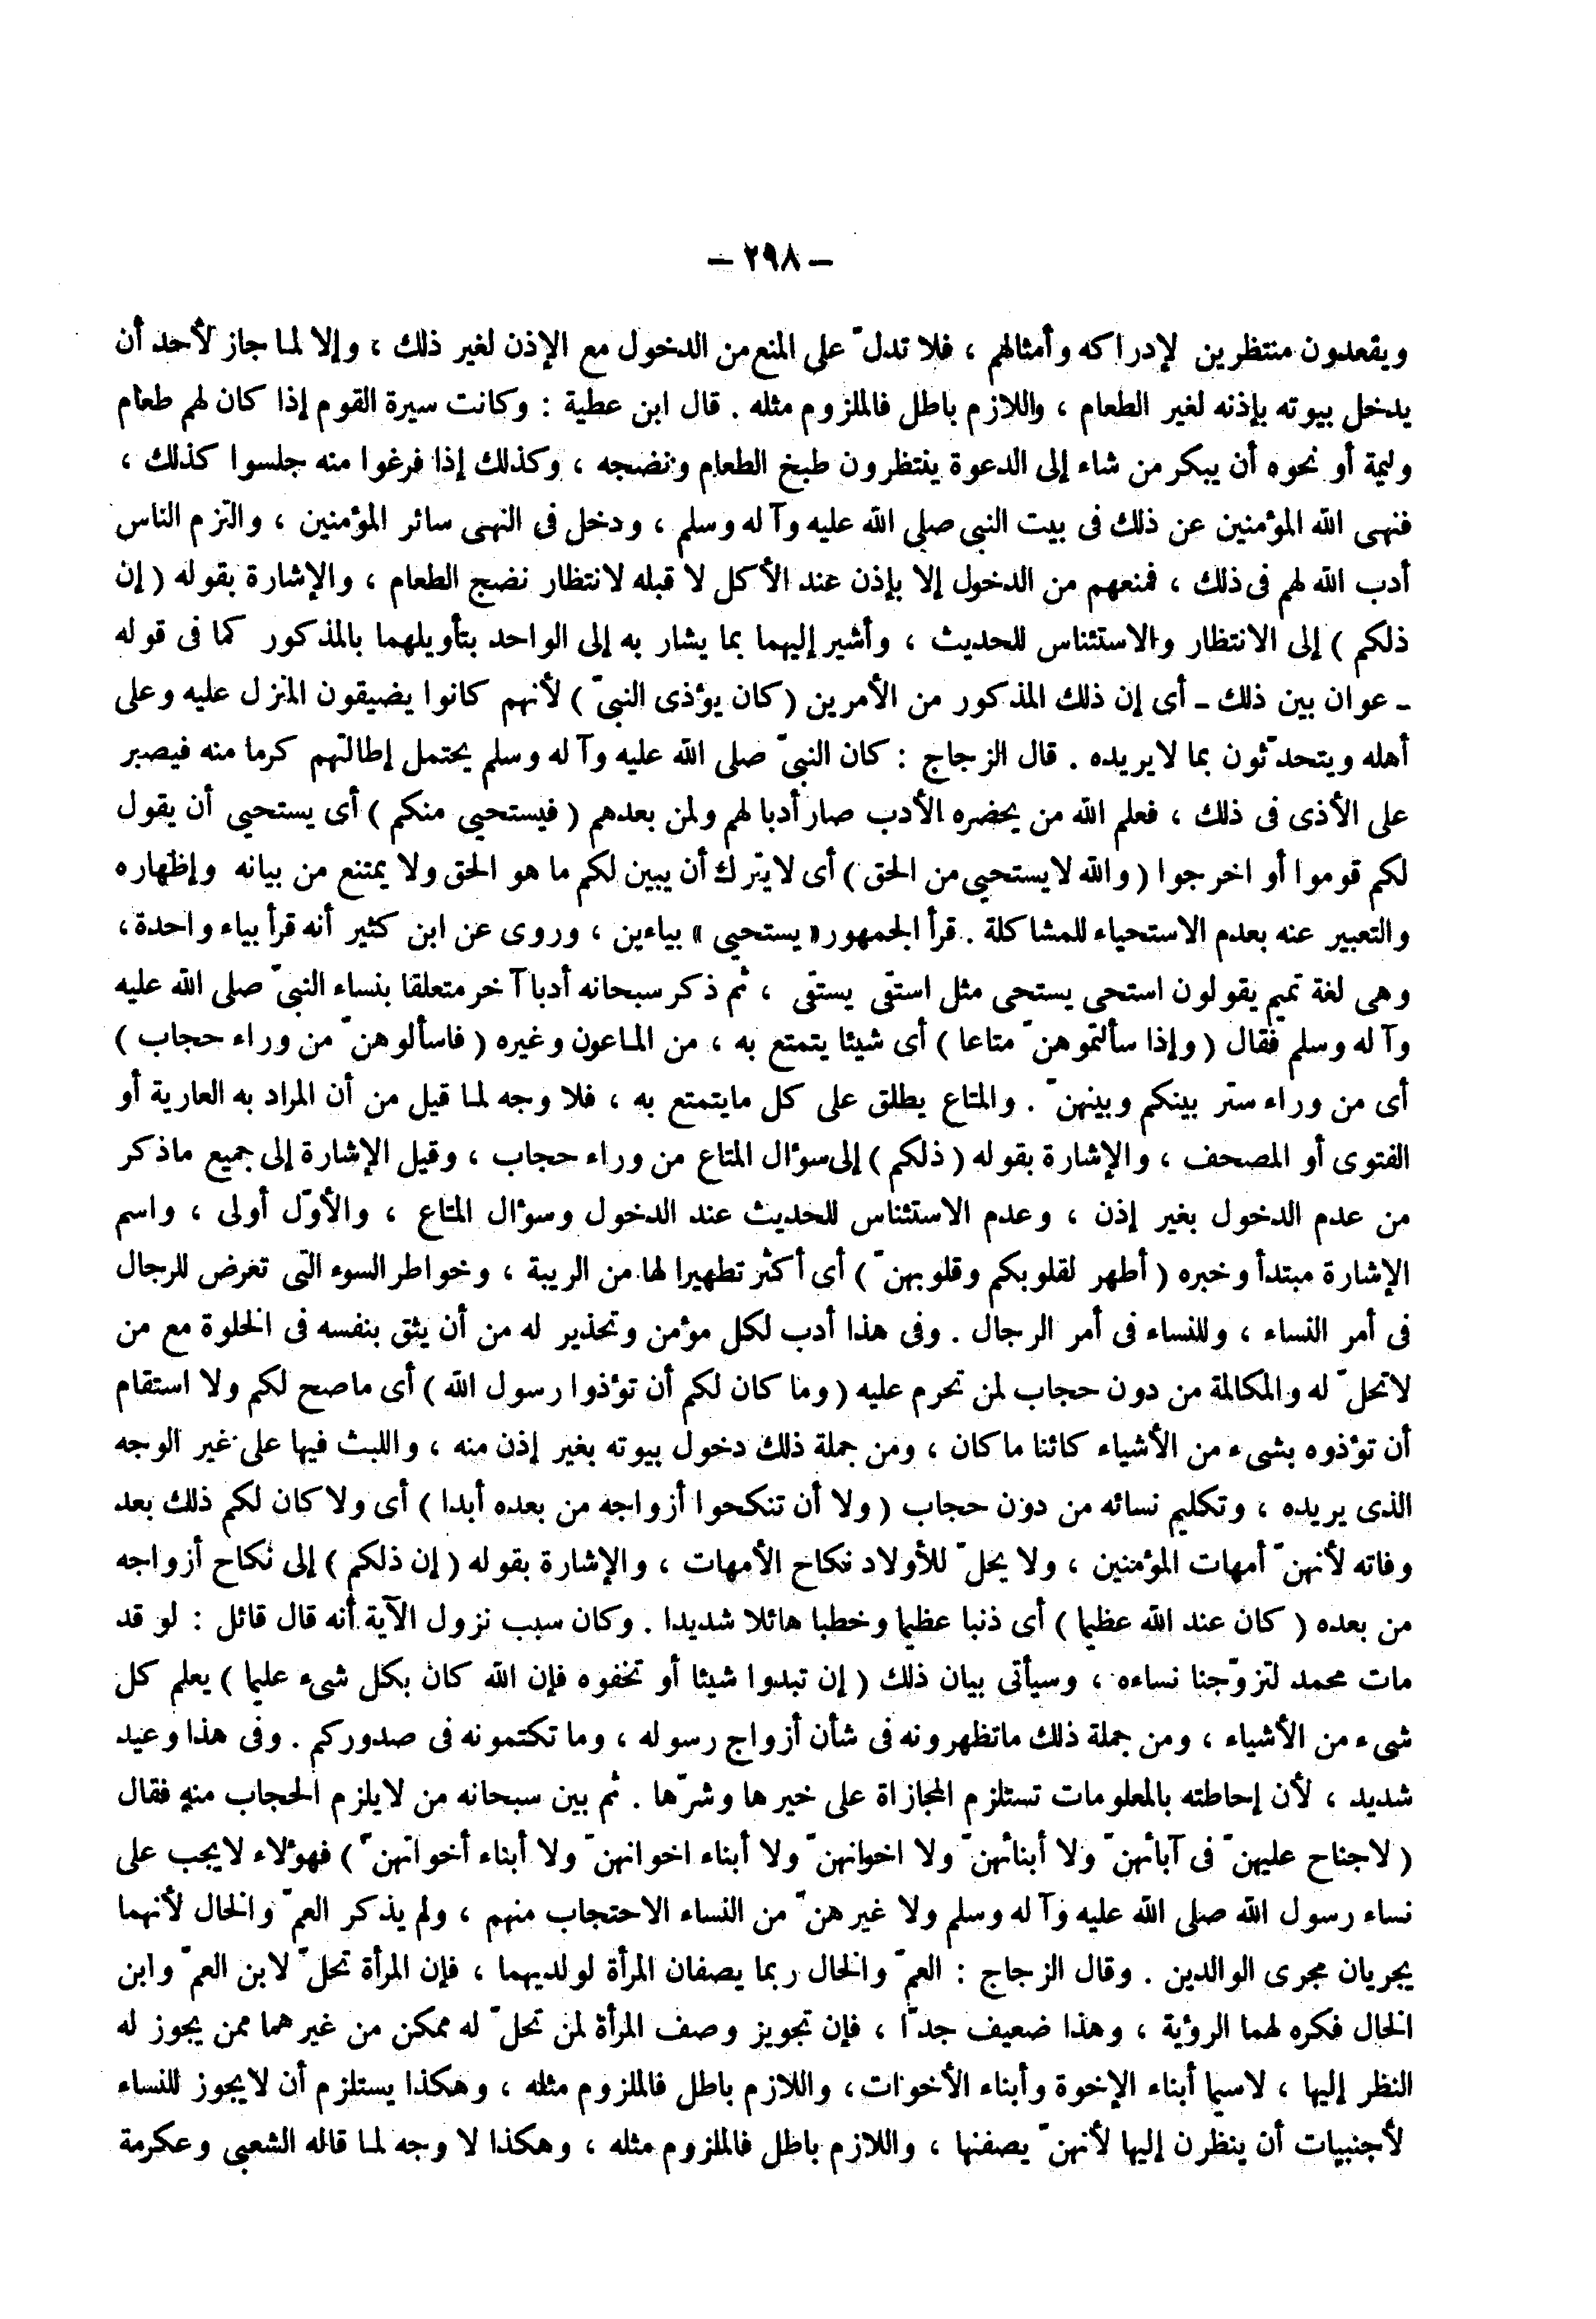 – ٢٩٨ –
ويقعدون منتظرين لإدراكه وأمثالهم ، فلا تدلّ على المنع من الدخول مع الإذن لغير ذلك ، وإلا لما جاز لأحد أن
يدخل بيوته بإذنه لغير الطعام ، واللازم باطل فالملزوم مثله . قال ابن عطية : وكانت سيرة القوم إذا كان لهم طعام
وليمة أو نحوه أن يبكر من شاء إلى الدعوة ينتظرون طبخ الطعام ونضجه ، وكذلك إذا فرغوا منه جلسوا كذلك ،
فنهى الله المؤمنين عن ذلك فى بيت النبى صلى الله عليه وآله وسلم ، ودخل فى النهى سائر المؤمنين ، والتزم الناس
أدب الله لهم فى ذلك ، فمنعهم من الدخول إلا بإذن عند الأكل لا قبله لانتظار نضج الطعام ، والإشارة بقوله ( إن
ذلكم ) إلى الانتظار والاستئناس للحديث ، وأشير إليهما بما يشار به إلى الواحد بتأويلهما بالمذكور كما فى قوله
ـ عوان بين ذلك ـ أى إن ذلك المذكور من الأمرين ( كان يؤذى النبىّ ) لأنهم كانوا يضيقون المنزل عليه وعلى
أهله ويتحدّثون بما لايريده . قال الزجاج : كان النبىّ صلى الله عليه وآله وسلم يحتمل إطالتهم كرما منه فيصبر
على الأذى فى ذلك ، فعلم الله من يحضره الأدب صار أدبا لهم ولمن بعدهم ( فيستحيى منكم ) أى يستحيى أن يقول
لكم قوموا أو اخرجوا ( والله لايستحيى من الحق ) أى لايترك أن يبين لكم ما هو الحق ولا يمتنع من بيانه وإظهاره
والتعبير عنه بعدم الاستحياء للمشاكلة . قرأ الجمهور « يستحيى » بياءين ، وروى عن ابن كثير أنه قرأ بياء واحدة ،
وهى لغة تميم يقولون استحى يستحى مثل استقى يستقى ، ثم ذكر سبحانه أدبا آخر متعلقا بنساء النبىّ صلى الله عليه
وآله وسلم فقال ( وإذا سألتموهنّ متاعا ) أى شيئا يتمتع به ، من الماعون وغيره ( فاسألوهنّ من وراء حجاب )
أى من وراء ستر بينكم وبينهنّ . والمتاع يطلق على كل مايتمتع به ، فلا وجه لما قيل من أن المراد به العارية أو
الفتوى أو المصحف ، والإشارة بقوله ( ذلكم ) إلى سؤال المتاع من وراء حجاب ، وقيل الإشارة إلى جميع ماذكر
من عدم الدخول بغير إذن ، وعدم الاستئناس للحديث عند الدخول وسؤال المتاع ، والأوّل أولى ، واسم
الإشارة مبتدأ وخبره ( أطهر لقلوبكم وقلوبهنّ ) أى أكثر تطهيرا لها من الريبة ، وخواطر السوء التى تعرض للرجال
فى أمر النساء ، وللنساء فى أمر الرجال . وفى هذا أدب لكل مؤمن وتحذير له من أن يثق بنفسه فى الخلوة مع من
لاتحلّ له والمكالمة من دون حجاب لمن تحرم عليه ( وما كان لكم أن تؤذوا رسول الله ) أى ماصح لكم ولا استقام
أن تؤذوه بشىء من الأشياء كائنا ماكان ، ومن جملة ذلك دخول بيوته بغير إذن منه ، واللبث فيها على غير الوجه
الذى يريده ، وتكليم نسائه من دون حجاب ( ولا أن تنكحوا أزواجه من بعده أبدا ) أى ولا كان لكم ذلك بعد
وفاته لأنهنّ أمهات المؤمنين ، ولا يحلّ للأولاد نكاح الأمهات ، والإشارة بقوله ( إن ذلكم ) إلى نكاح أزواجه
من بعده ( كان عند الله عظيما ) أى ذنبا عظيما وخطبا هائلا شديدا . وكان سبب نزول الآية أنه قال قائل : لو قد
مات محمد لتزوّجنا نساءه ، وسيأتى بيان ذلك ( إن تبدوا شيئا أو تخفوه فإن الله كان بكل شىء عليما ) يعلم كل
شىء من الأشياء ، ومن جملة ذلك ماتظهرونه فى شأن أزواج رسوله ، وما تكتمونه فى صدوركم . وفى هذا وعيد
شديد ، لأن إحاطته بالمعلومات تستلزم المجازاة على خيرها وشرّها . ثم بين سبحانه من لايلزم الحجاب منه فقال
( لاجناح عليهنّ فى آبائهنّ ولا أبنائهنّ ولا اخوانهنّ ولا أبناء اخوانهنّ ولا أبناء أخواتهنّ ) فهؤلاء لايجب على
نساء رسول الله صلى الله عليه وآله وسلم ولا غيرهنّ من النساء الاحتجاب منهم ، ولم يذكر العمّ والخال لأنهما
يجريان مجرى الوالدين . وقال الزجاج : العمّ والخال ربما يصفان المرأة لولديهما ، فإن المرأة تحلّ لابن العمّ وابن
الخال فكره لهما الرؤية ، وهذا ضعيف جدّا ، فإن تجويز وصف المرأة لمن تحلّ له ممكن من غيرهما ممن يجوز له
النظر إليها ، لاسيما أبناء الإخوة وأبناء الأخوات ، واللازم باطل فالملزوم مثله ، وهكذا يستلزم أن لايجوز للنساء
لأجنبيات أن ينظرن إليها لأنهنّ يصفنها ، واللازم باطل فالملزوم مثله ، وهكذا لا وجه لما قاله الشعبى وعكرمة